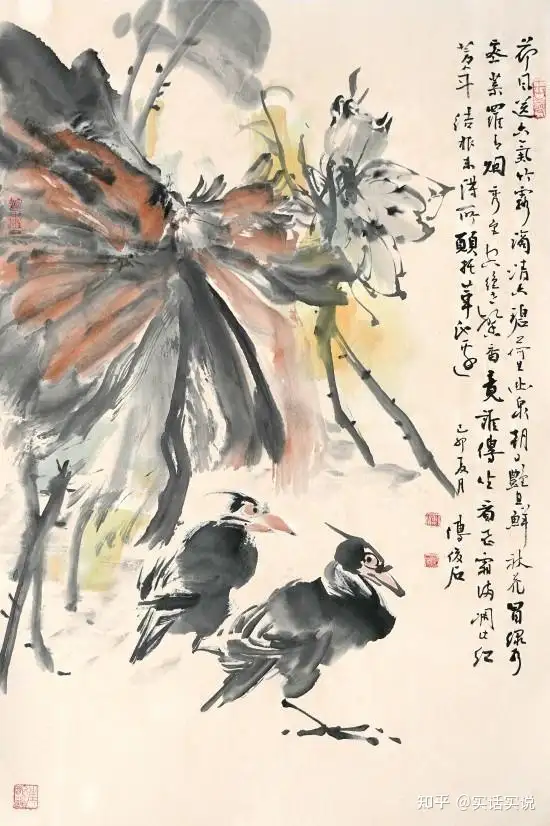 荷风送香氣竹露滴清响碧荷生幽泉朝日艷且鮮秋花冒绿水
密葉羅青烟秀色空絕世馨香竟誰傳坐看飛霜满凋此红
芳年结根未得所願托華池邊 己卯夏月 傅俊石
知乎 @实话实说